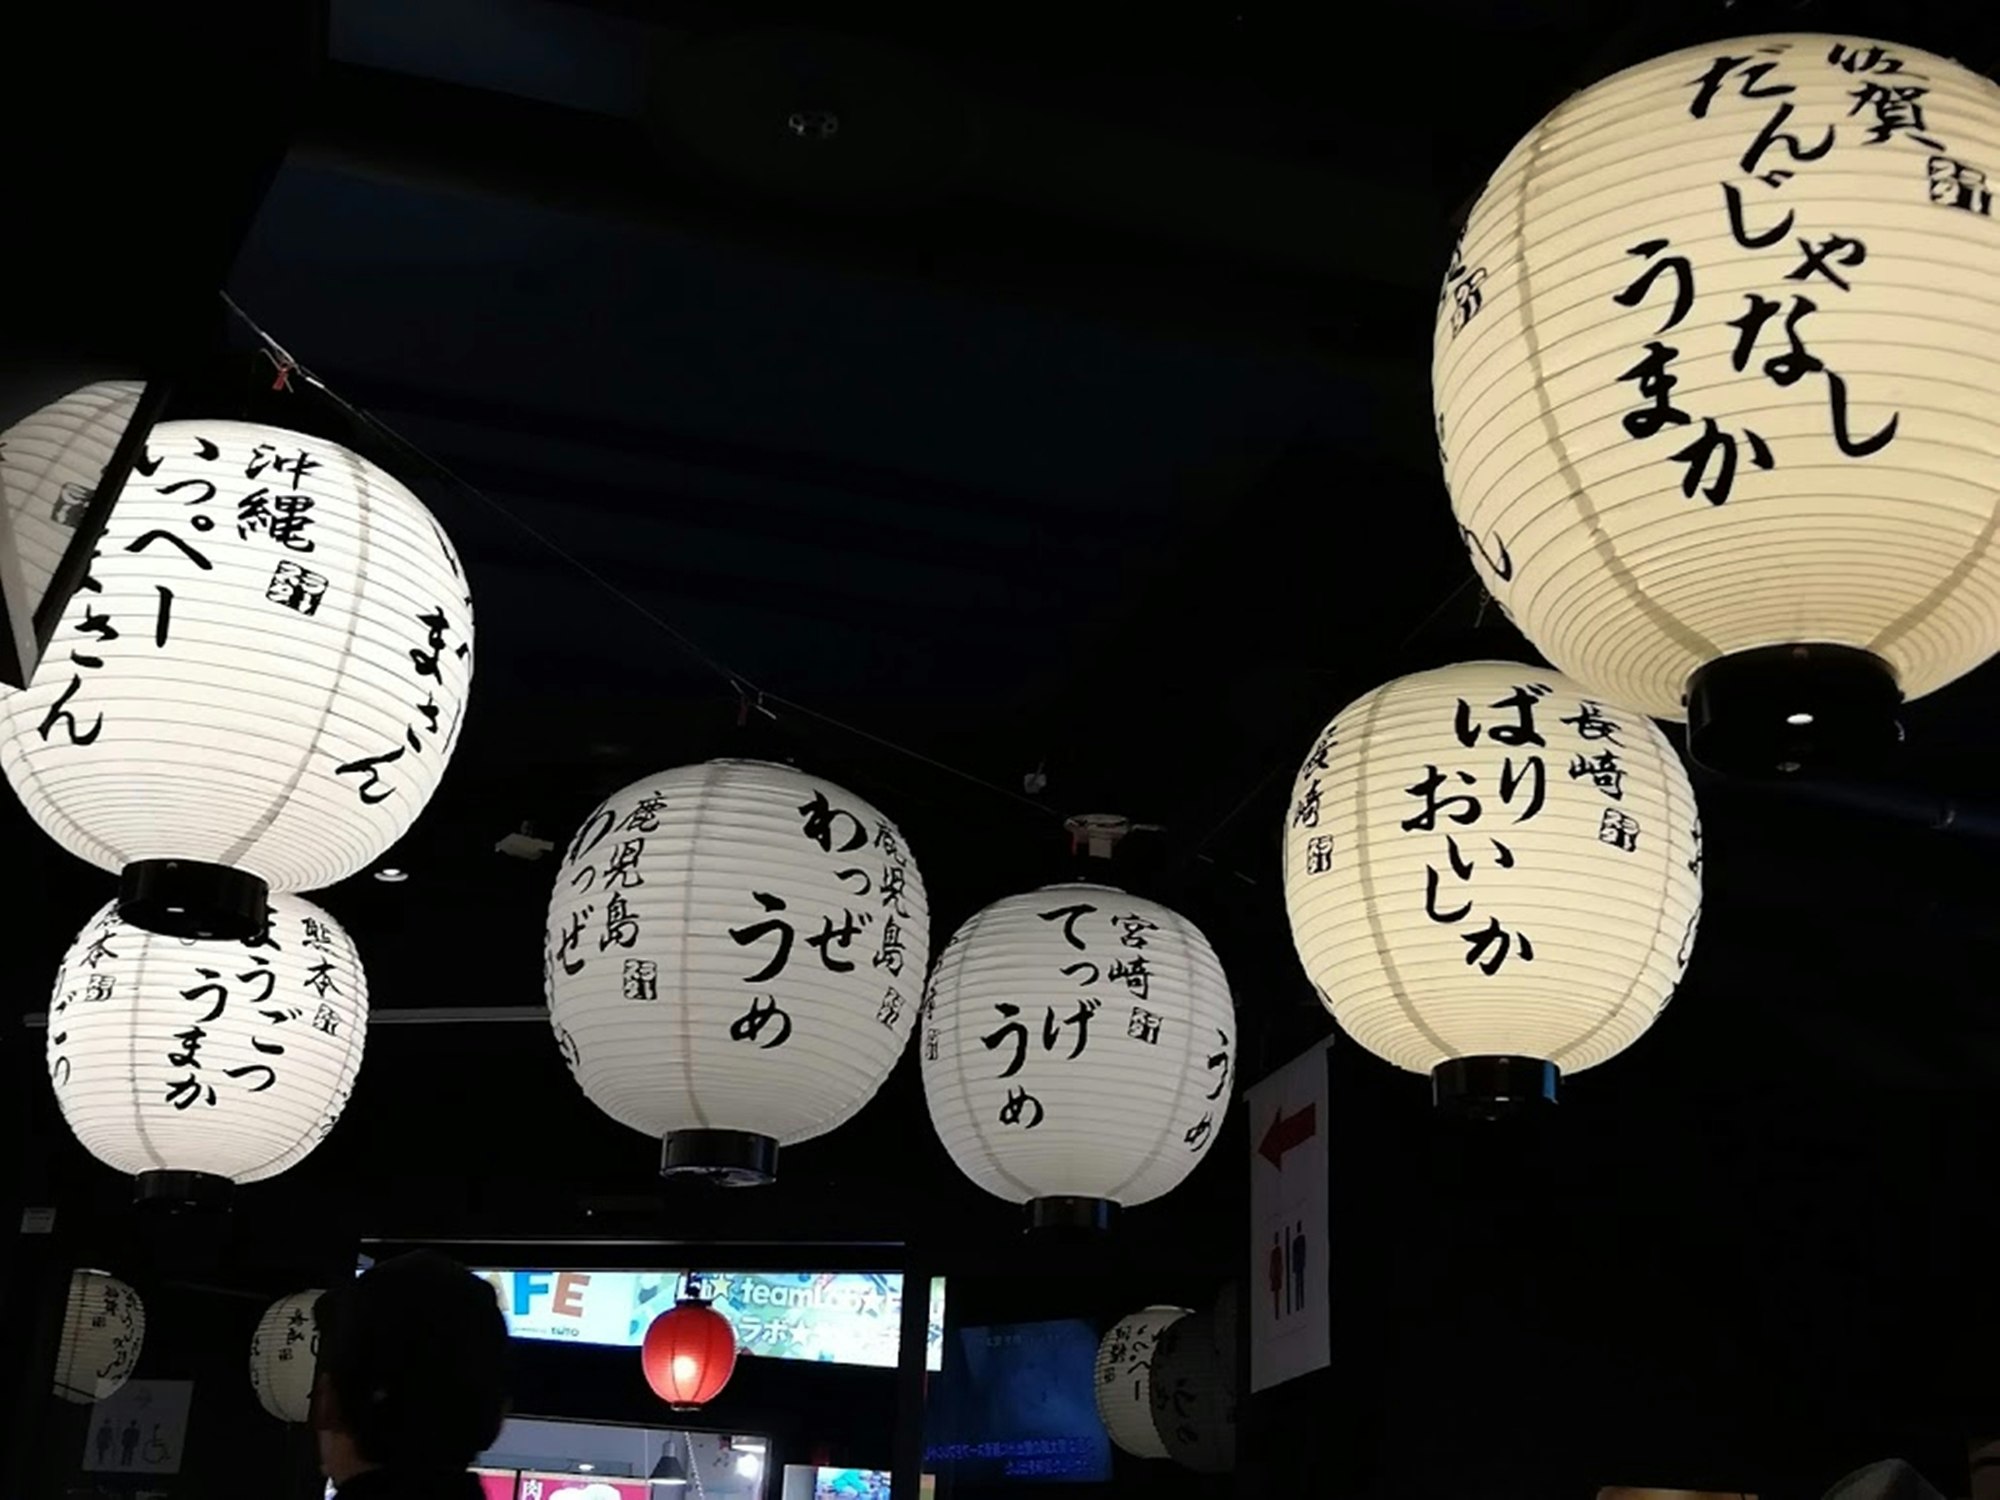 佐賀
だんじゃなし
うまか
沖縄
いっぺー
まさん
まさん
長崎
ばり
おいしか
長崎
鹿児島
わっぜ
うめ
鹿児島
わっぜ
宮崎
てっげ
うめ
うめ
熊本
まうごつ
うまか
FE
teamLab★
ラボ★
肉